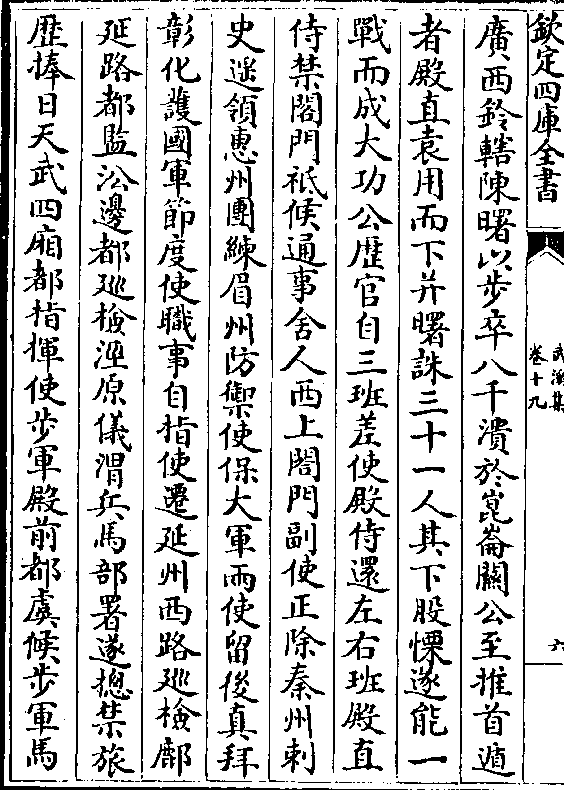 欽定四庫全書
武溪集
卷十九
六
廣西鈐轄陳曙以步卒八千潰於崑崙關公至推首遁
者殿直袁用而下并曙誅三十一人其下股慄遂能一
戰而成大功公歴官自三班差使殿侍還左右班殿直
侍禁閤門祗候通事舍人西上閤門副使正除秦州刺
史遥領惠州團練眉州防禦使保大軍兩使留後真拜
彰化護國軍節度使職事自指使遷延州西路廵檢鄜
延路都監沿邊都廵檢涇原儀渭兵馬部署遂揔禁旅
歴捧日天武四廂都指揮使步軍殿前都虞候步軍馬